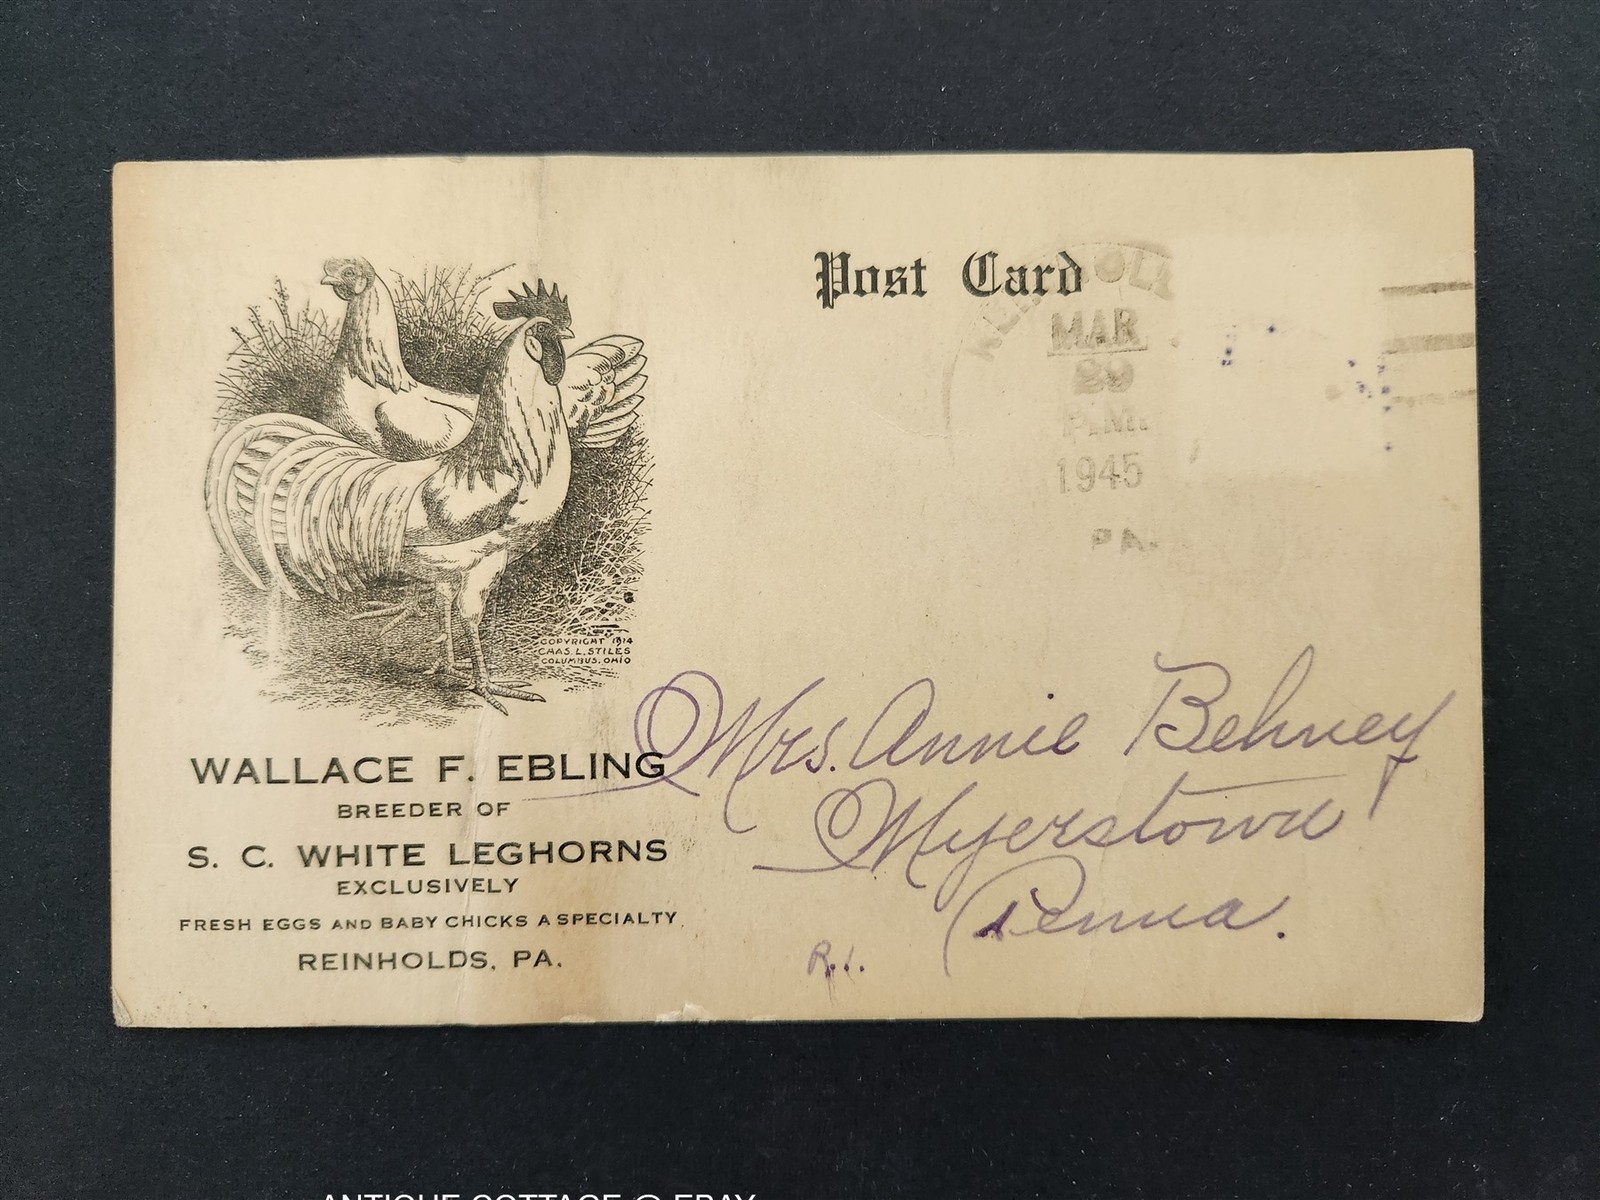 Post Card
MAR
29
P.M.
1945
PA.
COPYRIGHT 1914
CHAS. L. STILES
COLUMBUS, OHIO
WALLACE F. EBLING
BREEDER OF
S. C. WHITE LEGHORNS
EXCLUSIVELY
FRESH EGGS AND BABY CHICKS A SPECIALTY
REINHOLDS, PA.
Mrs. Annie Behney
Myerstown
Penna.
R.1.
ANTIQUE COTTAGE @ EBAY